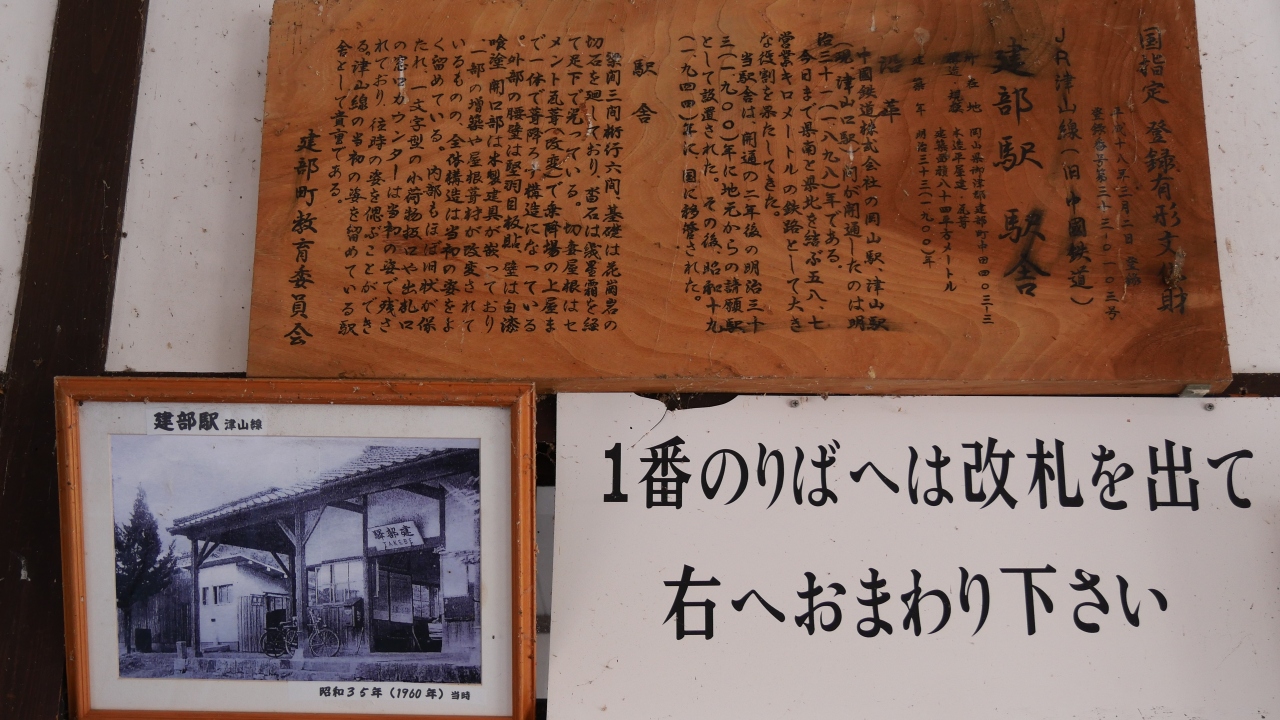 国指定 登録有形文化財
平成十八年三月二日 登録
登録番号第三十三‐〇一〇三号
JR津山線(旧中國鉄道)
建部駅 駅舎
所在地 岡山県御津郡建部町中田四〇三‐三
木造平屋建、瓦葺
建築面積八十四平方メートル
建築年 明治三十三(一九〇〇)年
沿革
中國鉄道株式会社の岡山駅、津山駅
(現 津山口駅)間が開通したのは明
治三十一(一八九八)年である。
今日まで県南と県北を結ぶ五八・七
営業キロメートルの鉄路として大き
な役割を果たしてきた。
当駅舎は、開通の二年後の明治三十
三(一九〇〇)年に地元からの請願駅
として設置された。その後、昭和十九
(一九四四)年に国に移管された。
駅舎
梁間三間桁行六間、基礎は花崗岩の
切石を廻しており、畨石は浅黒霜を経
て足下で光っている。切妻屋根はセ
メント瓦葺(改変)で乗降場の上屋ま
で一体で葺降ろす構造になっている
。外部の腰壁は堅羽目板貼、壁は白漆
喰塗、開口部は木製建具が嵌っており
、一部の増築や屋根葺材が改変されて
いるものの、全体構造は当初の姿をよ
く留めている。内部もほぼ旧状が保
たれ、一文字型の小荷物扱口や出札口
の窓口カウンターは当初の姿で残さ
れており、往時の姿を偲ぶことができ
る。津山線の当初の姿を留めている駅
舎として貴重である。
建部町教育委員会
建部駅 津山線
建部駅
TAKEBE
昭和35年(1960年)当時
1番のりばへは改札を出て
右へおまわり下さい